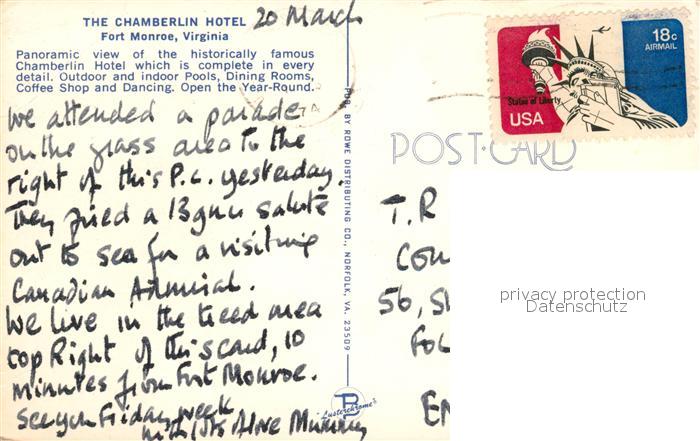 THE CHAMBERLIN HOTEL
20 March
Fort Monroe, Virginia
Panoramic view of the historically famous
Chamberlin Hotel which is complete in every
detail. Outdoor and indoor Pools, Dining Rooms,
Coffee Shop and Dancing. Open the Year-Round.
We attended a parade
on the grass area to the
right of this P.C. yesterday.
They fired a 13 gun salute
out to sea for a visiting
Canadian Admiral.
We live in the treed area
top Right of this card, 10
minutes from Fort Monroe.
See you Friday week
with lots of love Mummy
PUB. BY ROWE DISTRIBUTING CO., NORFOLK, VA. 23509
"Lusterchrome"
18c
AIRMAIL
Statue of Liberty
USA
POST CARD
T.R
COU
56, S
FOL
EN
privacy protection
Datenschutz